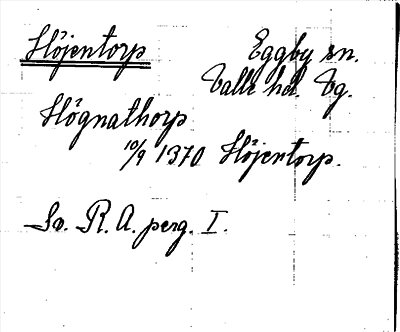 Höjentorp Eggby sn.
Valle hd. Vg.
Högnathorp
10/9 1370 Höjentorp.
Sv. R. A. perg. I.